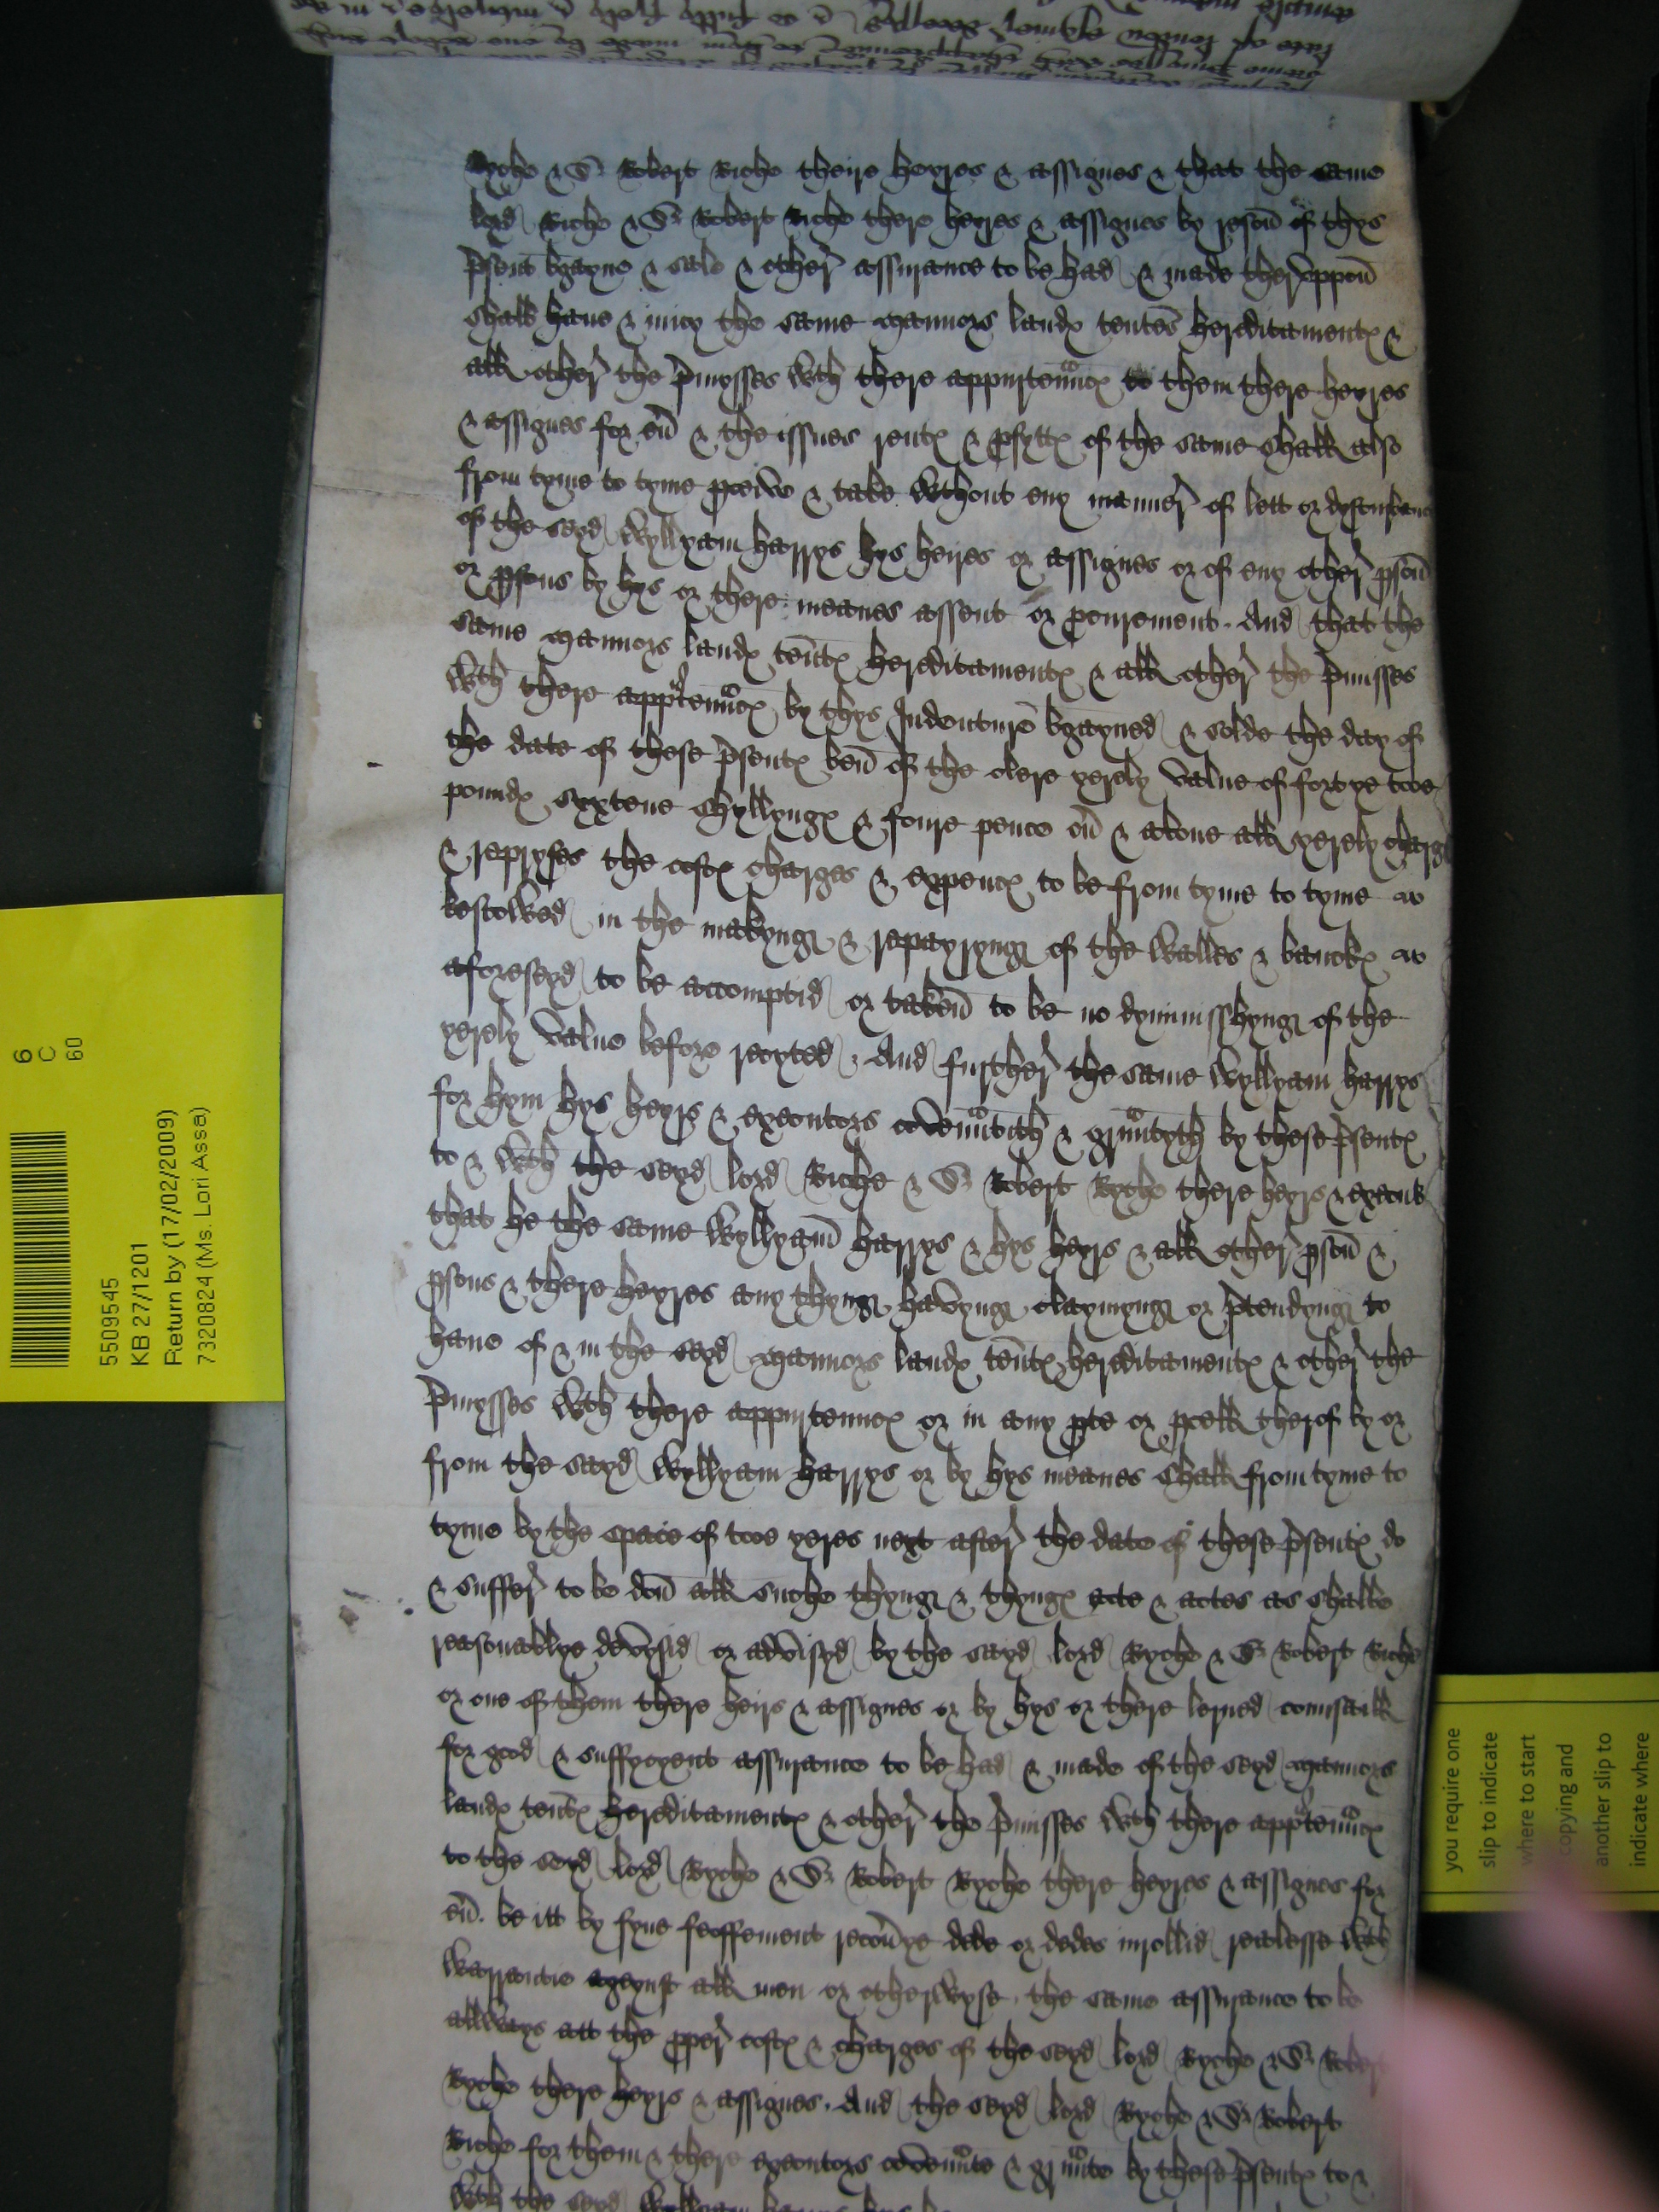 Ryche & Sr Robert Riche theire heyres & assignes & that the same
lord Riche & Sr Robert Riche there heyres & assignes by reson of thys
psent bgayne & sale & other assurance to be had & made theruppon
shall haue & inioy the same mannors landes tentes hereditamentes &
all other the pmysses wth there appurtennces to them there heyres
& assignes for eu & the issues rentes & pfyttes of the same shall also
from tyme to tyme pceive & take wthout eny manner of lett or dysturbance
of the seyd Wyllyam harrys hys heires or assignes or of eny other pson
or psons by hys or there meanes assent or pcurement. And that the
same mannors landes tentes hereditamentes & all other the pmisses
wth there apptennces by thys Indenture bgayned & solde the day of
the date of these psentes ben of the clere yerely value of fortye twoe
poundes syxtene shyllynges & foure pence ou & aboue all yerely charges
& repryses the costes charges & expences to be from tyme to tyme
bestowed in the makyng & repayryng of the walles & banckes
aforeseyd to be accomptid or taken to be no dyminisshyng of the
yerely value before recyted. And further the same Wyllyam harrys
for hym hys heyrs & executors covenntith & grnntyth by these psentes
to & wth the seyd lord Riche & Sr Robert Ryche there heyrs & execut
that he the same Wyllyam harrys & hys heyrs & all other pson &
psons & there heyres any thyng havyng claymyng or ptendyng to
haue of & in the seyd mannors landes tentes hereditamentes & other the
pmysses wth there appurtennces or in any pte or pcell therof by or
from the sayd Wyllyam harrys or by hys meanes shall from tyme to
tyme by the space of twoe yeres next after the date of these psentes do
& suffer to be don all suche thyng & thynges acte & actes as shalbe
reasonablye devysid or advisyd by the sayd lord Ryche & Sr Robert Riche
or one of them there heirs & assignes or by hys or there lerned counsaill
for good & suffycyent assurance to be had & made of the seyd mannors
landes tentes hereditamentes & other the pmisses wth there apptennces
to the seyd lord Ryche & Sr Robert Ryche there heyres & assignes for
eu. be itt by fyne feoffement recouye dede or dedes inrollid realesse wth
warrantie ageynst all men or otherwyse. the same assurance to be
allways att the pper costes & charges of the seyd lord Ryche & Sr Robert
Ryche there heyrs & assignes. And the seyd lord Ryche & Sr Robert
Riche for them & there executors covennte & grnnte by these psentes to &
wth the seyd Wyllyam harrys hys
6
C
60
5509545
KB 27/1201
Return by (17/02/2009)
7320824 (Ms. Lori Assa)
you require one
slip to indicate
where to start
copying and
another slip to
indicate where